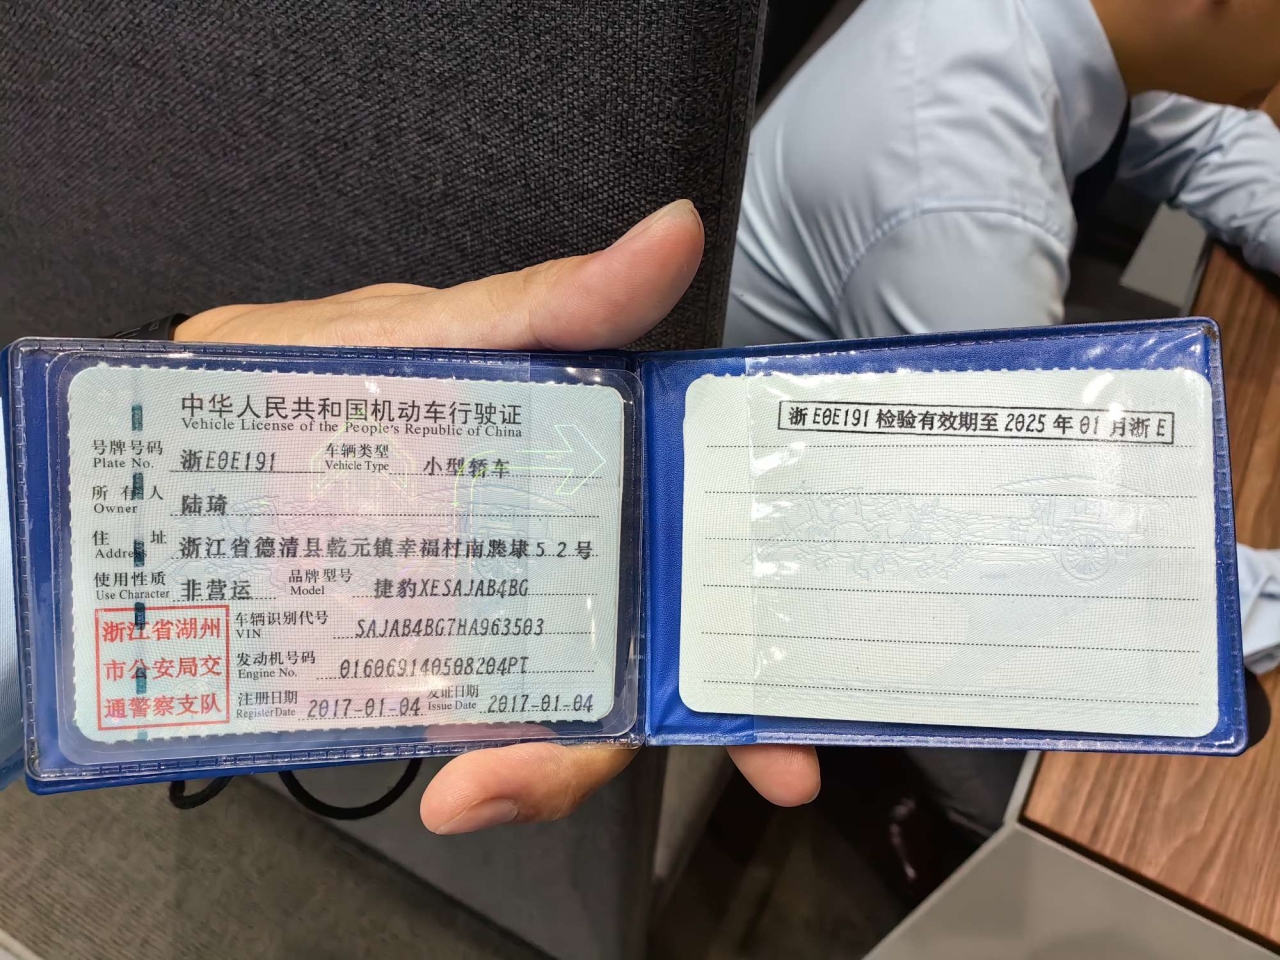 中华人民共和国机动车行驶证
Vehicle License of the People's Republic of China
号牌号码 浙E0E191 车辆类型 小型轿车
Plate No. Vehicle Type
所有人 陆琦
Owner
住址 浙江省德清县乾元镇幸福村南塍埭52号
Address
使用性质 非营运 品牌型号 捷豹XESAJAB4BG
Use Character Model
浙江省湖州
市公安局交
通警察支队
车辆识别代号 SAJAB4BG7HA963503
VIN
发动机号码 016069140508204PT
Engine No.
注册日期 2017-01-04 发证日期 2017-01-04
Register Date Issue Date
浙E0E191检验有效期至2025年01月浙E